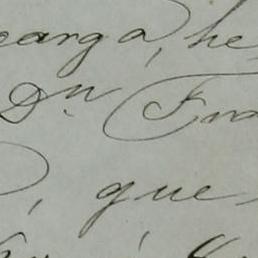 carga, he
Dn Fra
, que